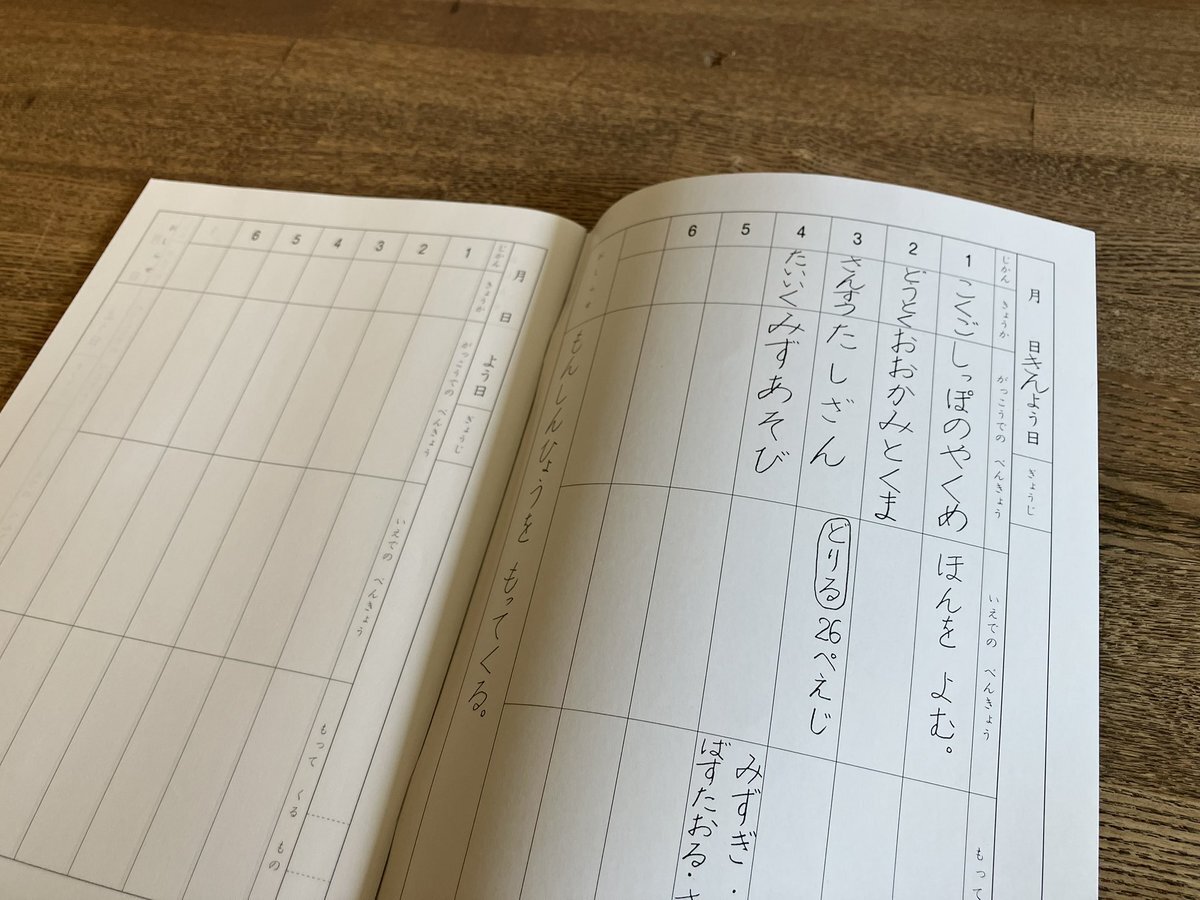 月 日きんよう日
ぎょうじ
じかん
きょうか
がっこうでの べんきょう
いえでの べんきょう
もって
1
こくご
しっぽのやくめ
ほんを よむ。
2
どうとく
おおかみとくま
3
さんすう
たしざん
どりる 26ぺえじ
4
たいいく
みずあそび
みずぎ・
ばすたおる・
5
6
もんしんひょうを もってくる。
月 日 よう日
ぎょうじ
じかん
きょうか
がっこうでの べんきょう
いえでの べんきょう
もって くる もの
1
2
3
4
5
6